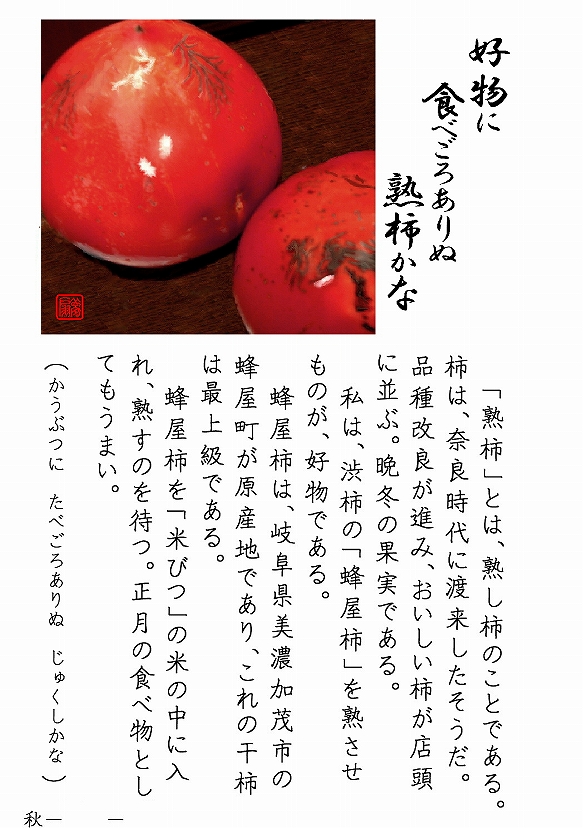 好物に
食べごろありぬ
熟柿かな
「熟柿」とは、熟し柿のことである。
柿は、奈良時代に渡来したそうだ。
品種改良が進み、おいしい柿が店頭
に並ぶ。晩冬の果実である。
私は、渋柿の「蜂屋柿」を熟させ
ものが、好物である。
蜂屋柿は、岐阜県美濃加茂市の
蜂屋町が原産地であり、これの干柿
は最上級である。
蜂屋柿を「米びつ」の米の中に入
れ、熟すのを待つ。正月の食べ物とし
てもうまい。
（かうぶつに　たべごろありぬ　じゅくしかな）
秋－　　－